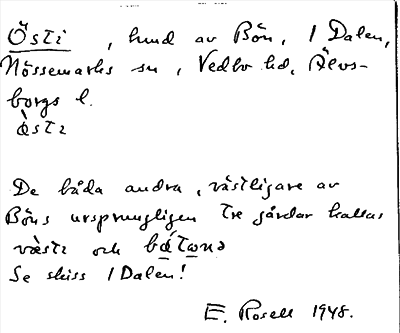 Östi , hemd av Bön, 1 Dalen,
Nössemarks sn, Vedbo hd, Älvs-
borgs l.
ὰstɩ
De båda andra, västligare av
Böns ursprungligen tre gårdar kallas
vὰstɩ och bátαnə
Se skiss 1 Dalen!
E. Rosell 1948.